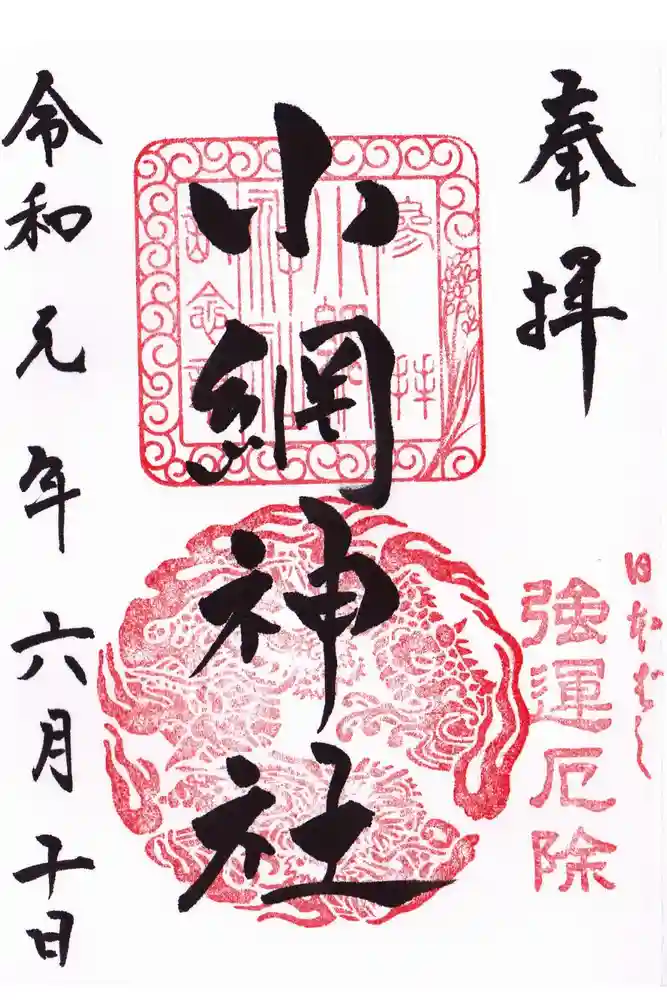 奉拝
日本ばし
強運厄除
参拝
小網
神社
記念印
小網神社
令和元年六月十日